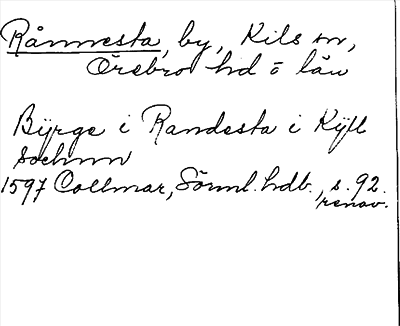 Rånnesta, by, Kils sn,
Örebro hd o län
Byrge i Randesta i Kÿll
Sochnn
1597 Collmar, Sörml. hdl., s. 92.
renov.